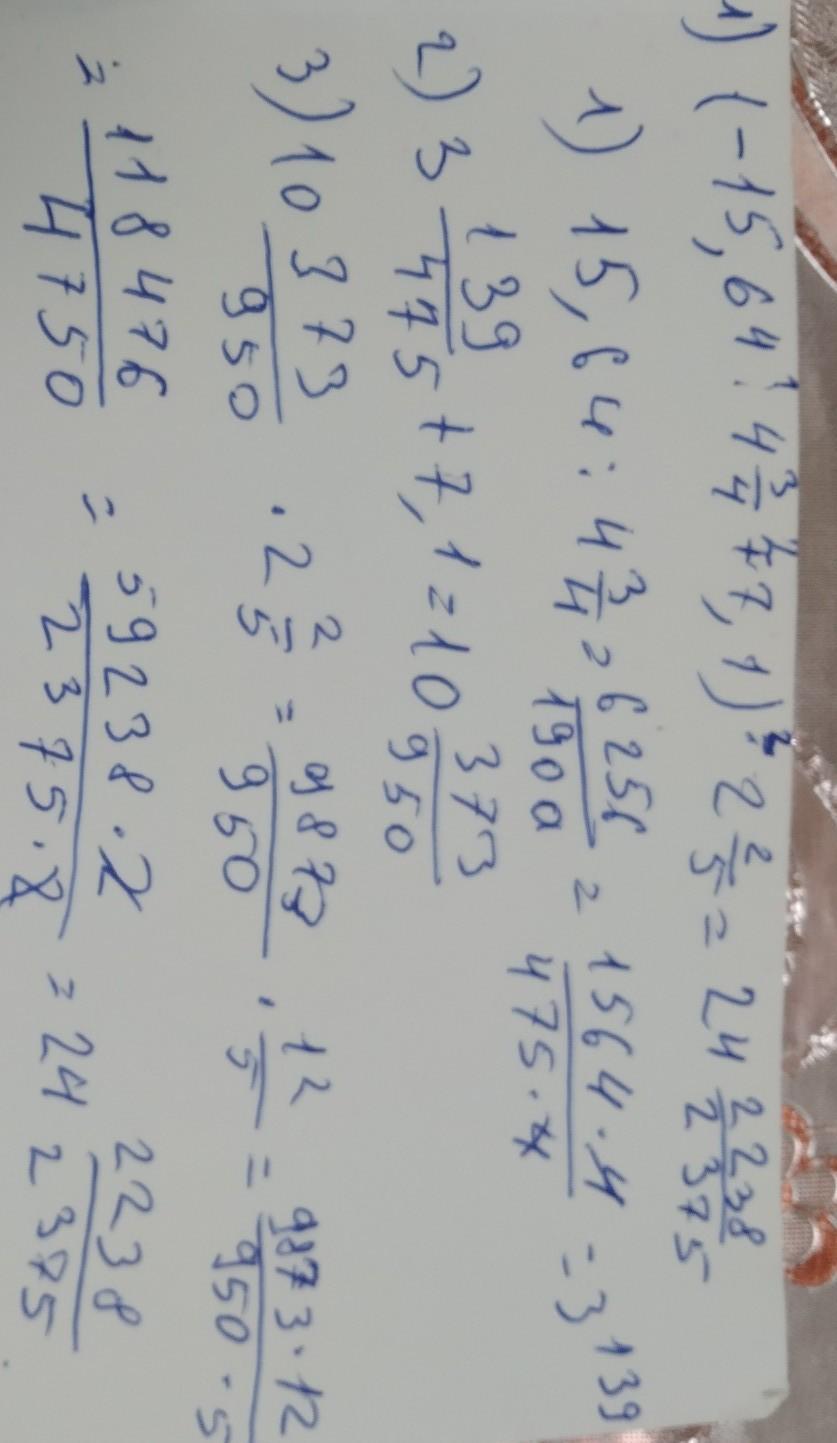 1) (-15,64 : 4 3/4 + 7,1) · 2 2/5 = 24 2238/2375
1) 15,64 : 4 3/4 = 6256/1900 = 1564·4/475·4 = 3 139
2) 3 139/475 + 7,1 = 10 373/950
3) 10 373/950 · 2 2/5 = 9873/950 · 12/5 = 9873·12/950·5
= 118476/4750 = 59238·2/2375·2 = 24 2238/2375